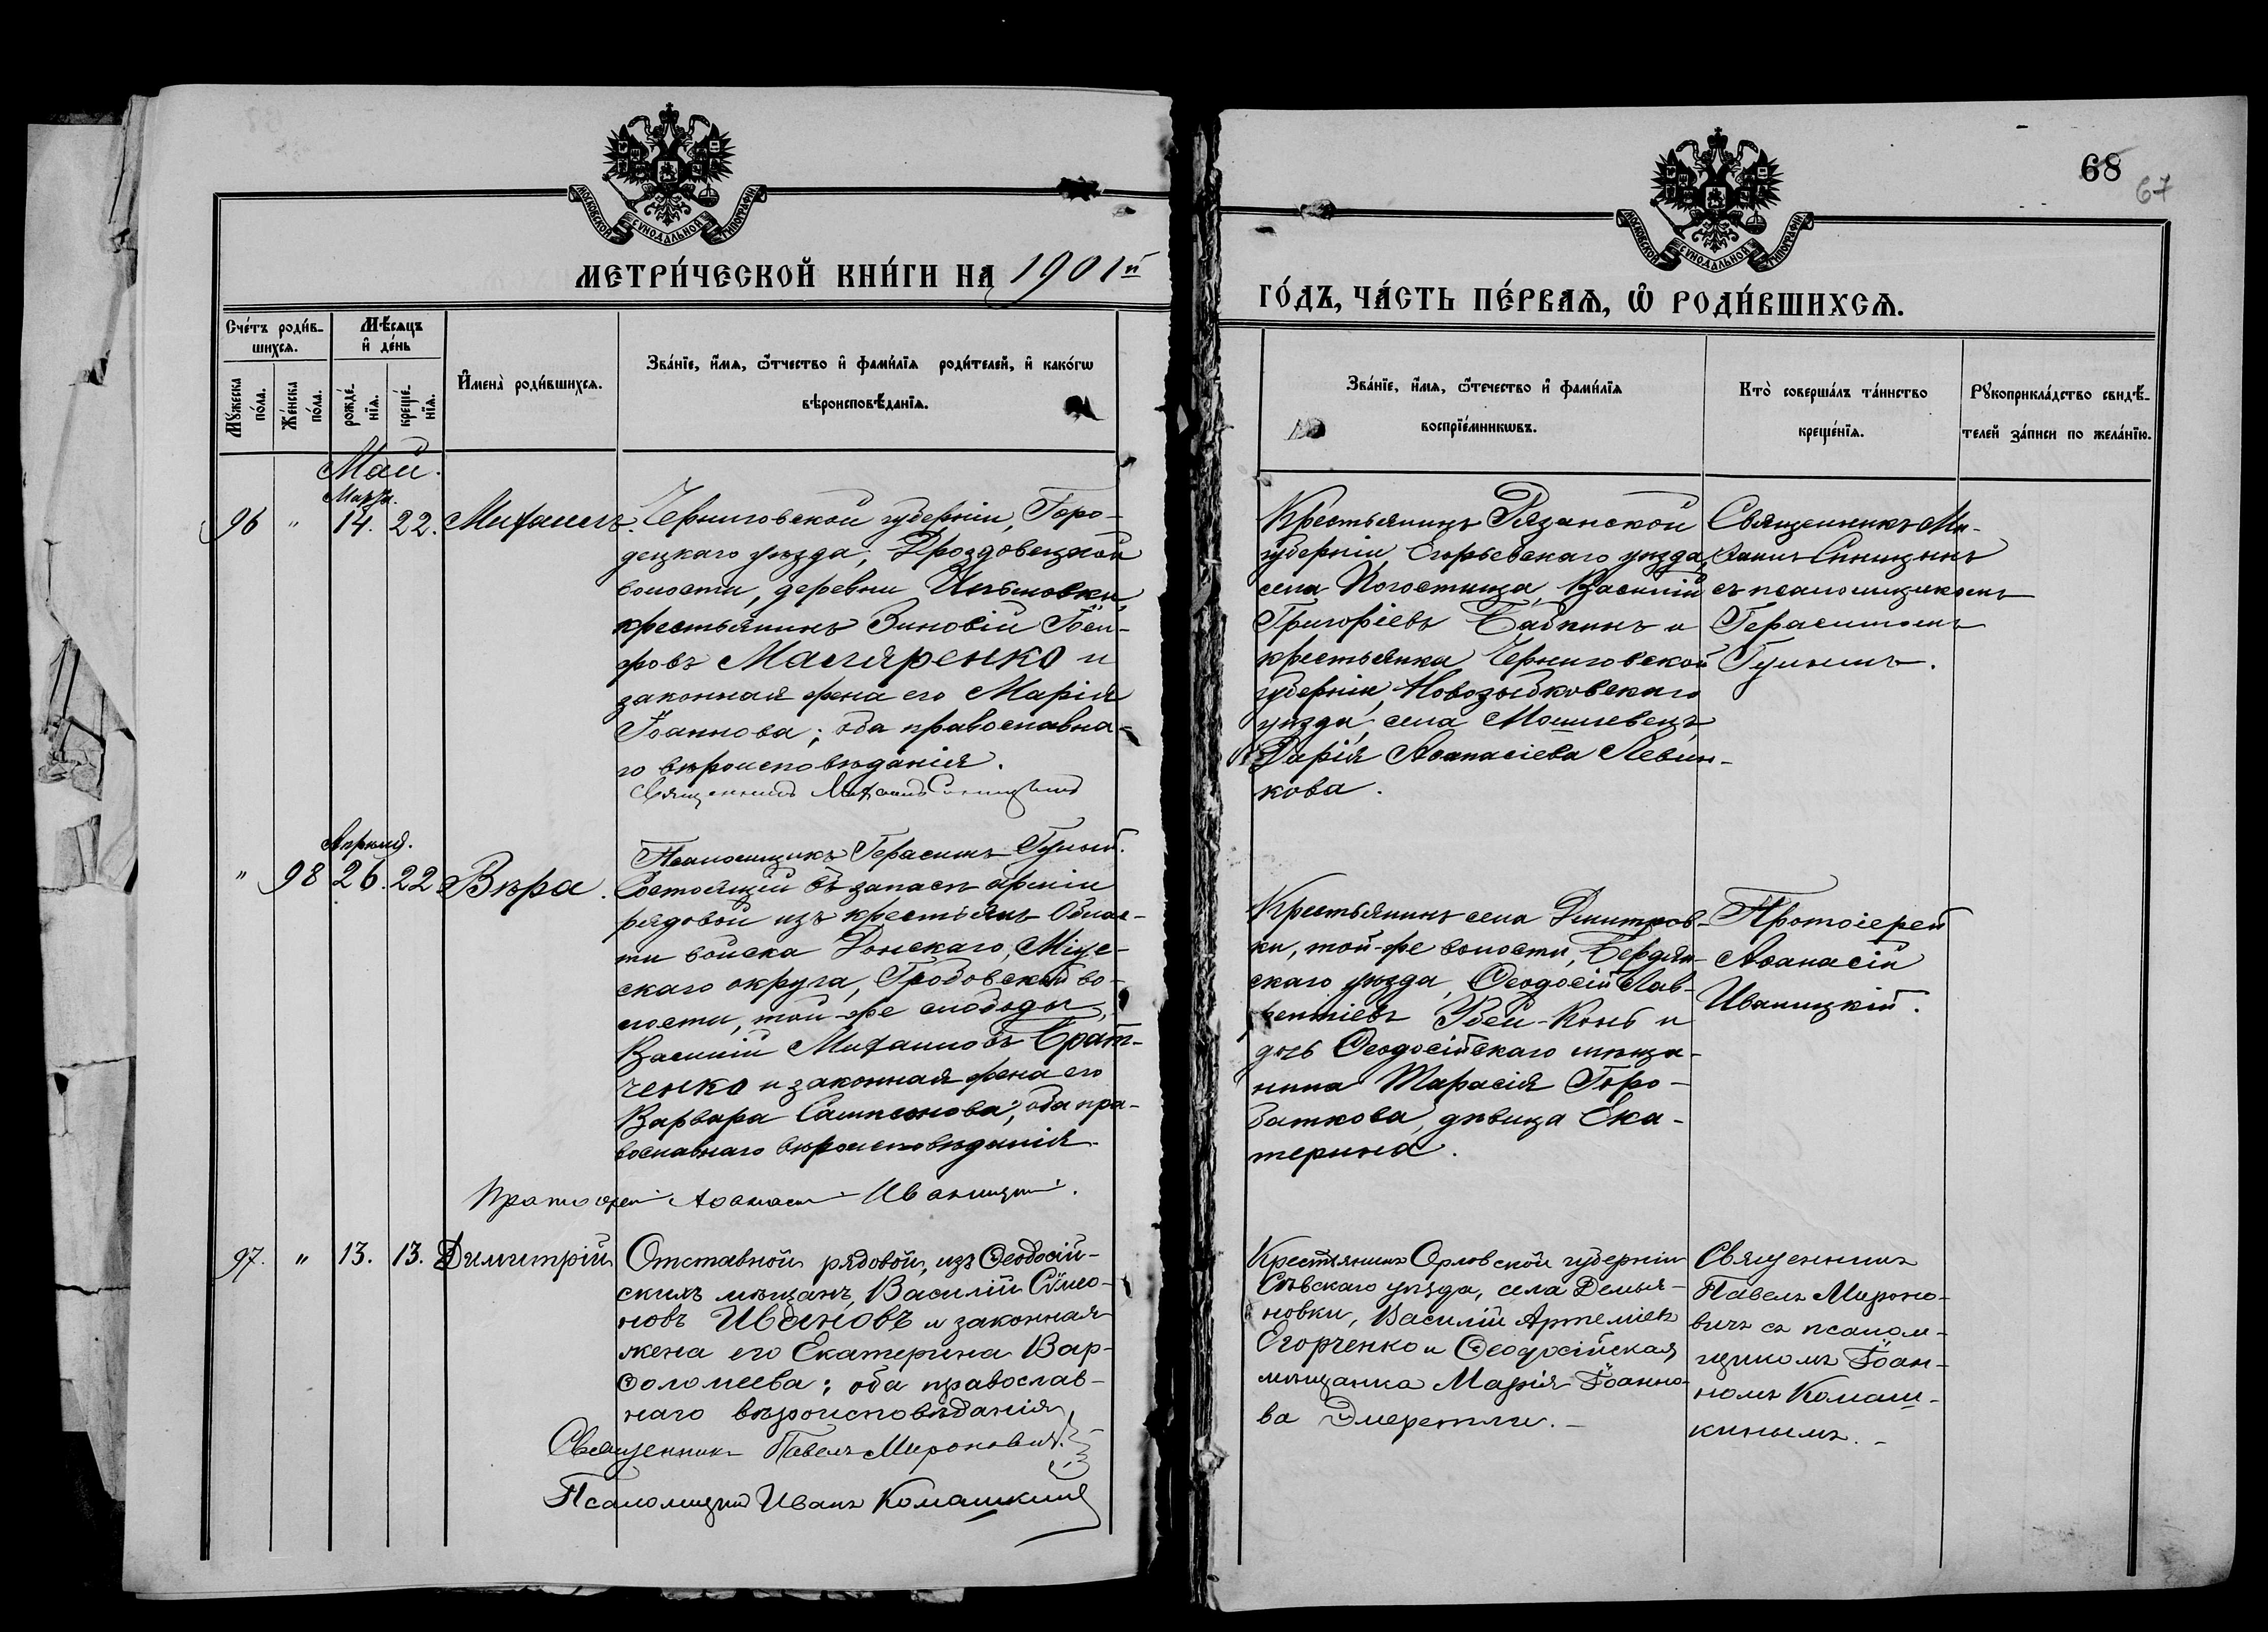 МОСКОВСКОЙ СУНОДАЛЬНОЙ ТИПОГРАФІИ
МЕТРИ́ЧЕСКОЙ КНИ́ГИ НА 1901й
Сче́тъ роди́в-
шихсѧ.
Мѣ́сѧцъ
и҆ де́нь
Мꙋ́жеска
по́ла.
Же́нска
по́ла.
рожде́-
нїѧ.
креще́-
нїѧ.
И҆мена̀ роди́вшихсѧ.
Зва́нїе, и҆́мѧ, ѻ҆́тчество и҆ фами́лїѧ роди́телей, и҆ како́гѡ
вѣроисповѣ́данїѧ.
Май.
Марта.
96 " 14. 22. Михаилъ.
Черниговской губерніи, Горо-
децкаго уѣзда, Дроздовецкой
волости, деревни Ильмовки
крестьянинъ Зиновій Іоси-
фовъ Масляренко и
законная жена его Марія
Іоаннова; оба православна-
го вѣроисповѣданія.
Священникъ Михаилъ Синицынъ
Псаломщикъ Герасимъ Гулый.
Апрѣля.
" 98 26. 22 Вѣра.
Состоящій въ запасѣ арміи
рядовой изъ крестьянъ Облас-
ти войска Донскаго, Міус-
скаго округа, Грабовской во-
лости, той-же слободы,
Василій Михаиловъ Брат-
ченко и законная жена его
Варвара Сампсонова; оба пра-
вославнаго вѣроисповѣданія.
Протоіерей Аѳанасій Иваницкій.
97. " 13. 13. Димитрій
Отставной рядовой, изъ Ѳеодосій-
скихъ мѣщанъ, Василій Сѷмо-
новъ Ивановъ и законная
жена его Екатерина Вар-
ѳоломеева; оба православ-
наго вѣроисповѣданія
Священникъ Павелъ Мироновичъ.
Псаломщикъ Иванъ Комашкинъ
МОСКОВСКОЙ СУНОДАЛЬНОЙ ТИПОГРАФІИ
68
67
ГО́ДЪ, ЧА́СТЬ ПЕ́РВАѦ, Ѡ҆ РОДИ́ВШИХСѦ.
Зва́нїе, и҆́мѧ, ѻ҆́течество и҆ фами́лїѧ
воспрїе́мникѡвъ.
Кто̀ соверша́лъ та́инство
креще́нїѧ.
Рꙋкоприкла́дство свидѣ́-
телей за́писи по жела́нїю.
Крестьянинъ Рязанской
губерніи, Егорьевскаго уѣзда,
села Погостища, Василій
Григоріевъ Бабкинъ и
крестьянка Черниговской
губерніи, Новозыбковскаго
уѣзда, села
Дарія Аѳанасіева Левши-
кова.
Священникъ Ми-
хаилъ Синицынъ
съ псаломщикомъ
Герасимомъ
Гулымъ.
Крестьянинъ села Дмитров-
ки, той-же волости, Бердян-
скаго уѣзда, Ѳеодосій Лав-
рентіевъ Убей-Конь и
дочь Ѳеодосійскаго мѣща-
нина Тарасія Горо-
баткова, дѣвица Ека-
терина.
Протоіерей
Аѳанасій
Иваницкій.
Крестьянинъ Орловской губерніи
Сѣвскаго уѣзда, села Демья-
новки, Василій Артеміевъ
Егорченко и Ѳеодосійская
мѣщанка Марія Іоанно-
ва Эмеретли.-
Священникъ
Павелъ Мироно-
вичъ съ псалом-
щикомъ Іоан-
номъ Комаш-
кинымъ.-